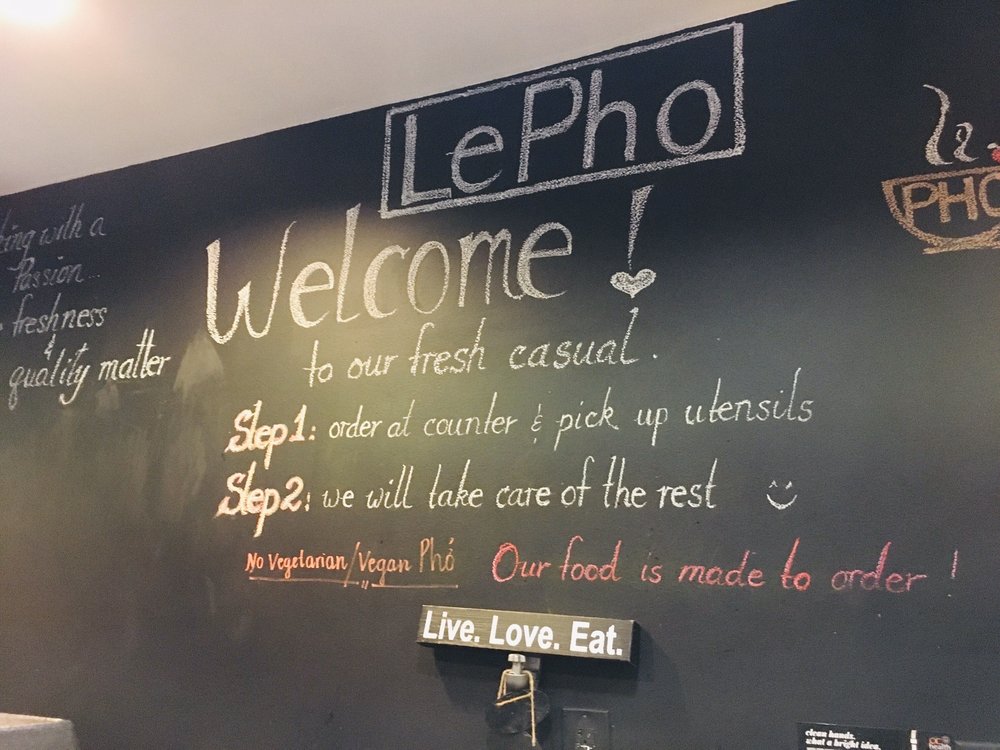 LePho
Welcome!
to our fresh casual.
Step 1: order at counter & pick up utensils
Step 2: we will take care of the rest
No Vegetarian/Vegan Phở
Our food is made to order!
with a
Passion
freshness
&
quality matter
PHO
Live. Love. Eat.
clean hands.
what a bright idea.